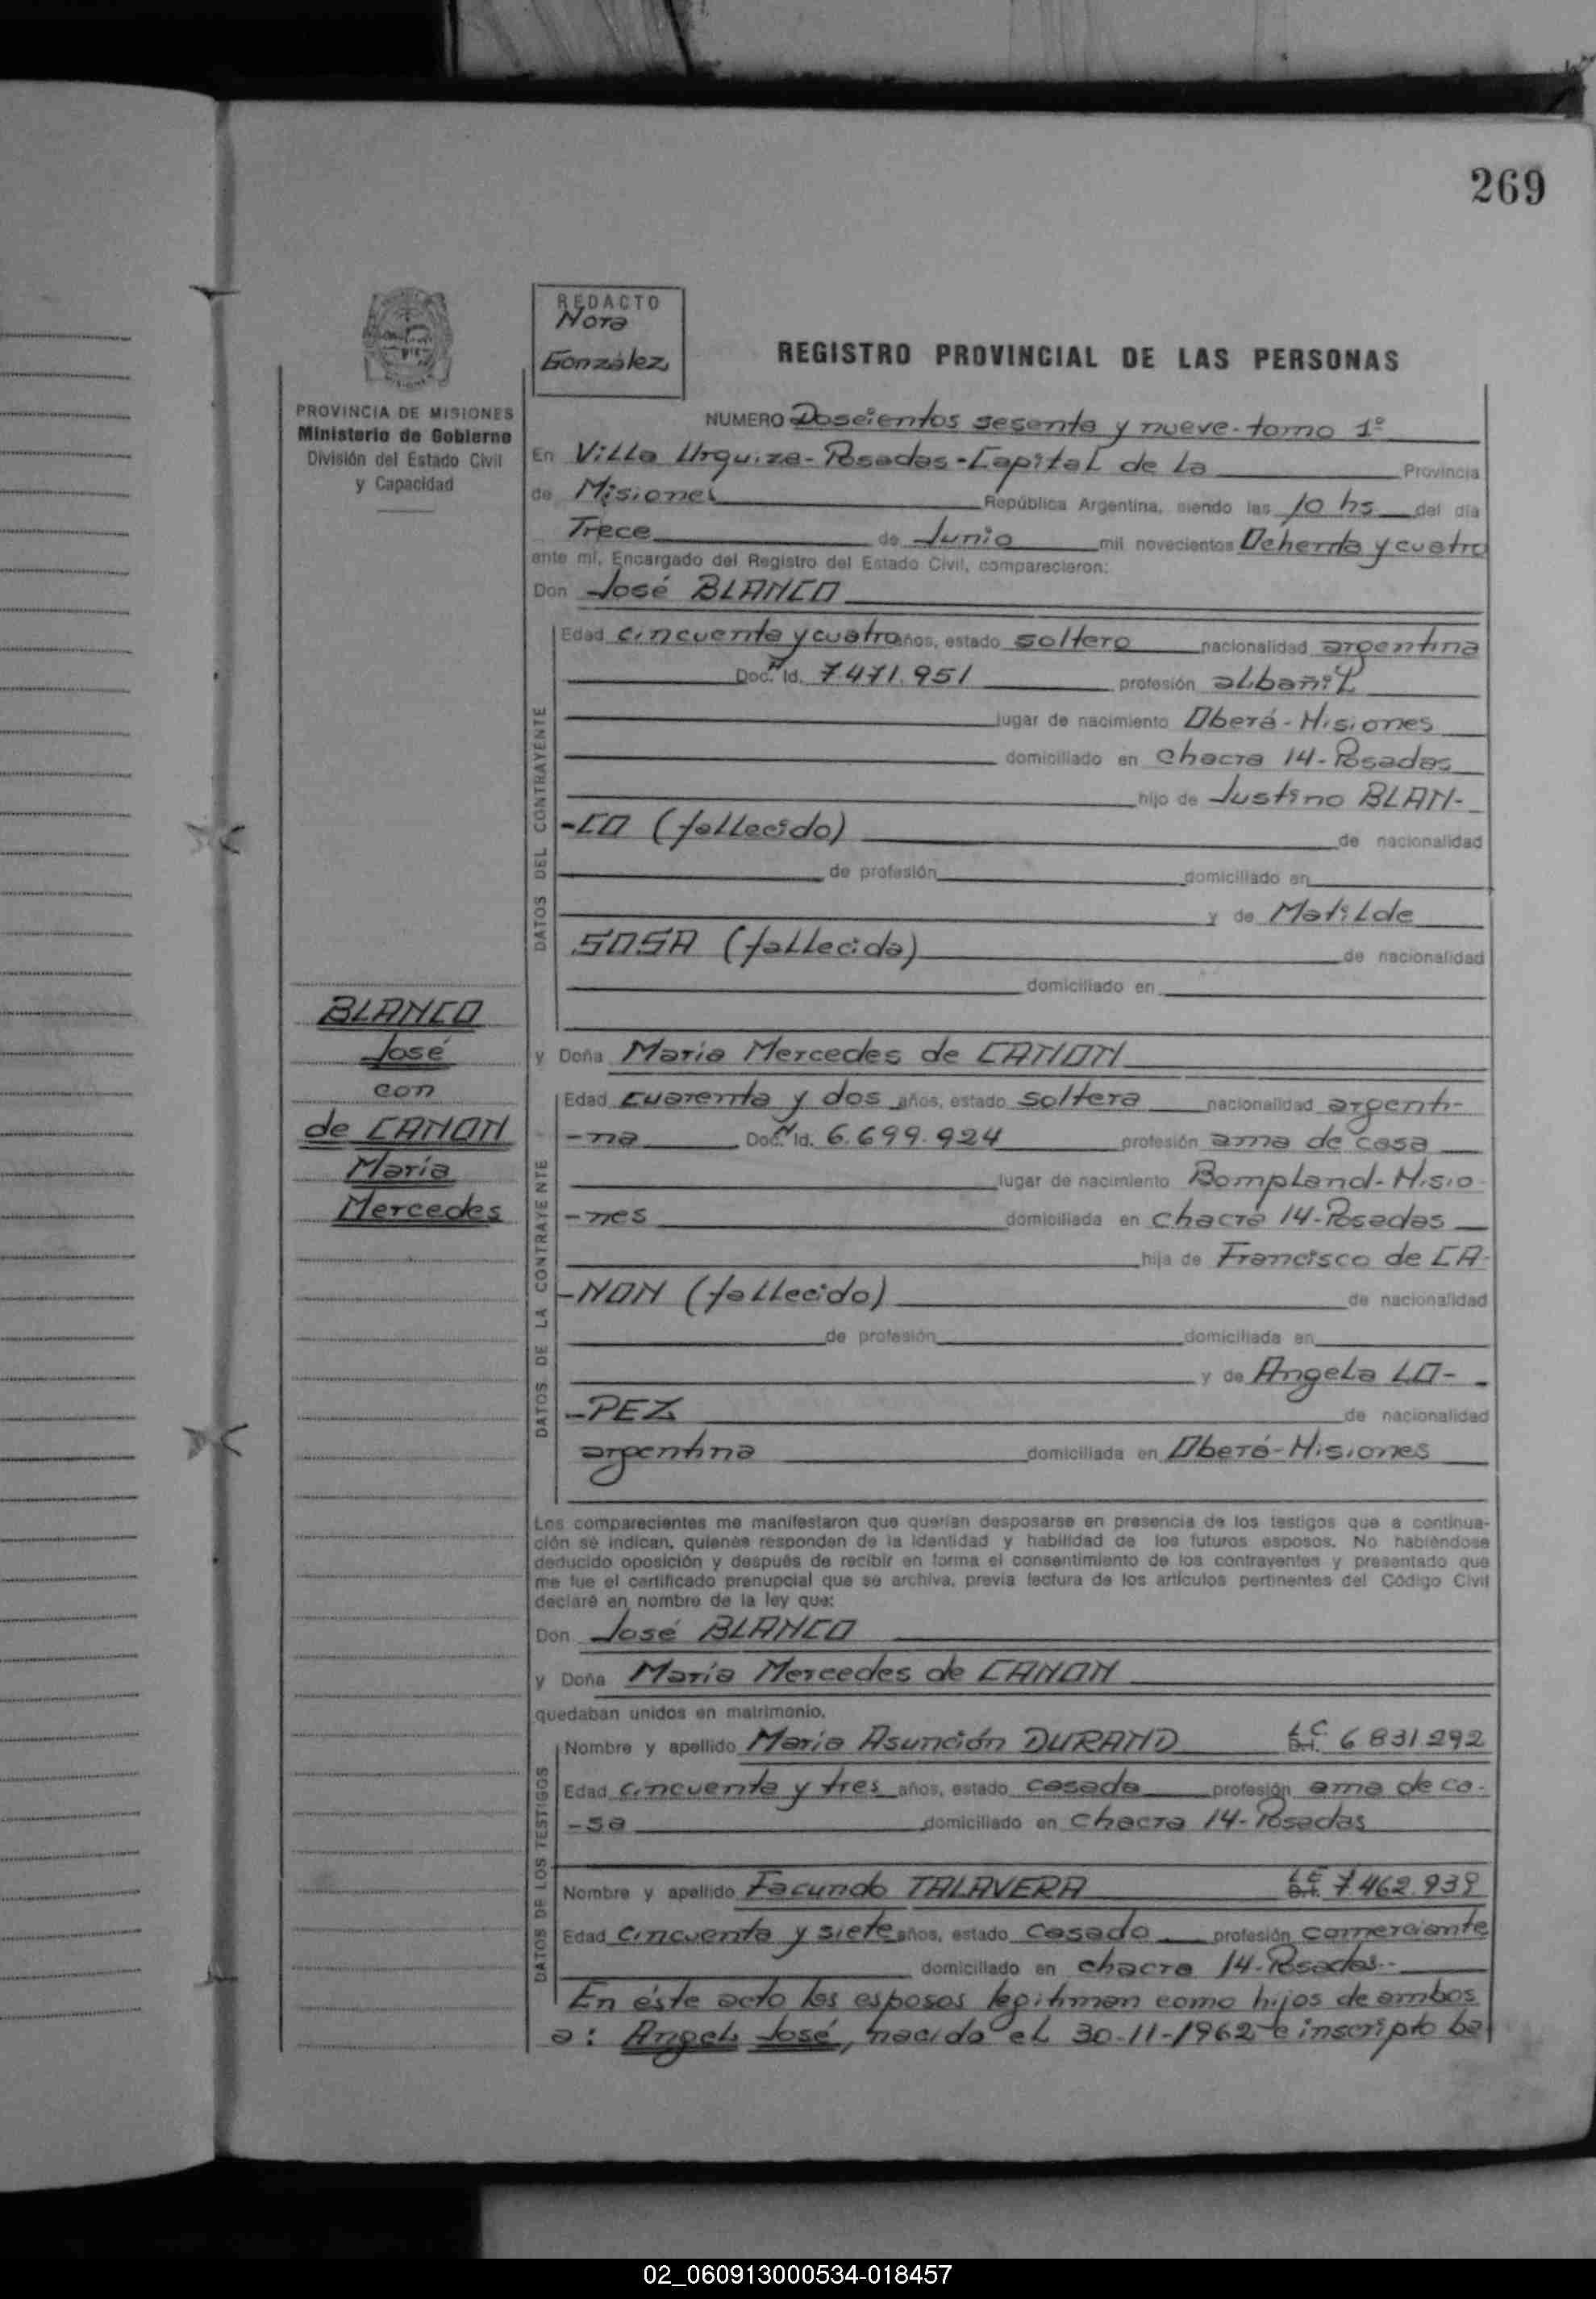 269
REDACTO
Nora
González
REGISTRO PROVINCIAL DE LAS PERSONAS
PROVINCIA DE MISIONES
Ministerio de Gobierno
División del Estado Civil
y Capacidad
NUMERO Doscientos sesenta y nueve- tomo 1º
En Villa Urquiza-Posadas-Capital de la Provincia
de Misiones República Argentina, siendo las 10 hs del día
Trece de Junio mil novecientos Ochenta y cuatro
ante mí, Encargado del Registro del Estado Civil, comparecieron:
Don José BLANCO
DATOS DEL CONTRAYENTE
Edad cincuenta y cuatro años, estado soltero nacionalidad argentina
Doc. Nº Id. 7.471.951 profesión albañil
lugar de nacimiento Oberá-Misiones
domiciliado en chacra 14-Posadas
hijo de Justino BLAN-
-CO (fallecido) de nacionalidad
de profesión domiciliado en
y de Matilde
SOSA (fallecida) de nacionalidad
domiciliado en
BLANCO
José
con
de CANON
María
Mercedes
y Doña María Mercedes de CANON
DATOS DE LA CONTRAYENTE
Edad cuarenta y dos años, estado soltera nacionalidad argenti-
-na Doc. Nº Id. 6.699.924 profesión ama de casa
lugar de nacimiento Bompland-Misio-
-nes domiciliada en chacra 14-Posadas
hija de Francisco de CA-
-NON (fallecido) de nacionalidad
de profesión domiciliada en
y de Angela LO-
-PEZ de nacionalidad
argentina domiciliada en Oberá-Misiones
Los comparecientes me manifestaron que querían desposarse en presencia de los testigos que a continua-
ción se indican, quienes responden de la identidad y habilidad de los futuros esposos. No habiéndose
deducido oposición y después de recibir en forma el consentimiento de los contrayentes y presentado que
me fue el certificado prenupcial que se archiva, previa lectura de los artículos pertinentes del Código Civil
declaré en nombre de la ley que:
Don José BLANCO
y Doña María Mercedes de CANON
quedaban unidos en matrimonio.
DATOS DE LOS TESTIGOS
Nombre y apellido María Asunción DURAND L.C. D.I. 6831292
Edad cincuenta y tres años, estado casada profesión ama de ca-
-sa domiciliado en chacra 14-Posadas
Nombre y apellido Facundo TALAVERA L.E. D.I. 7.462.939
Edad cincuenta y siete años, estado casado profesión comerciante
domiciliado en chacra 14-Posadas--
En éste acto los esposos legitiman como hijos de ambos
a: Angel José, nacido el 30-11-1962 e inscripto ba
02_060913000534-018457